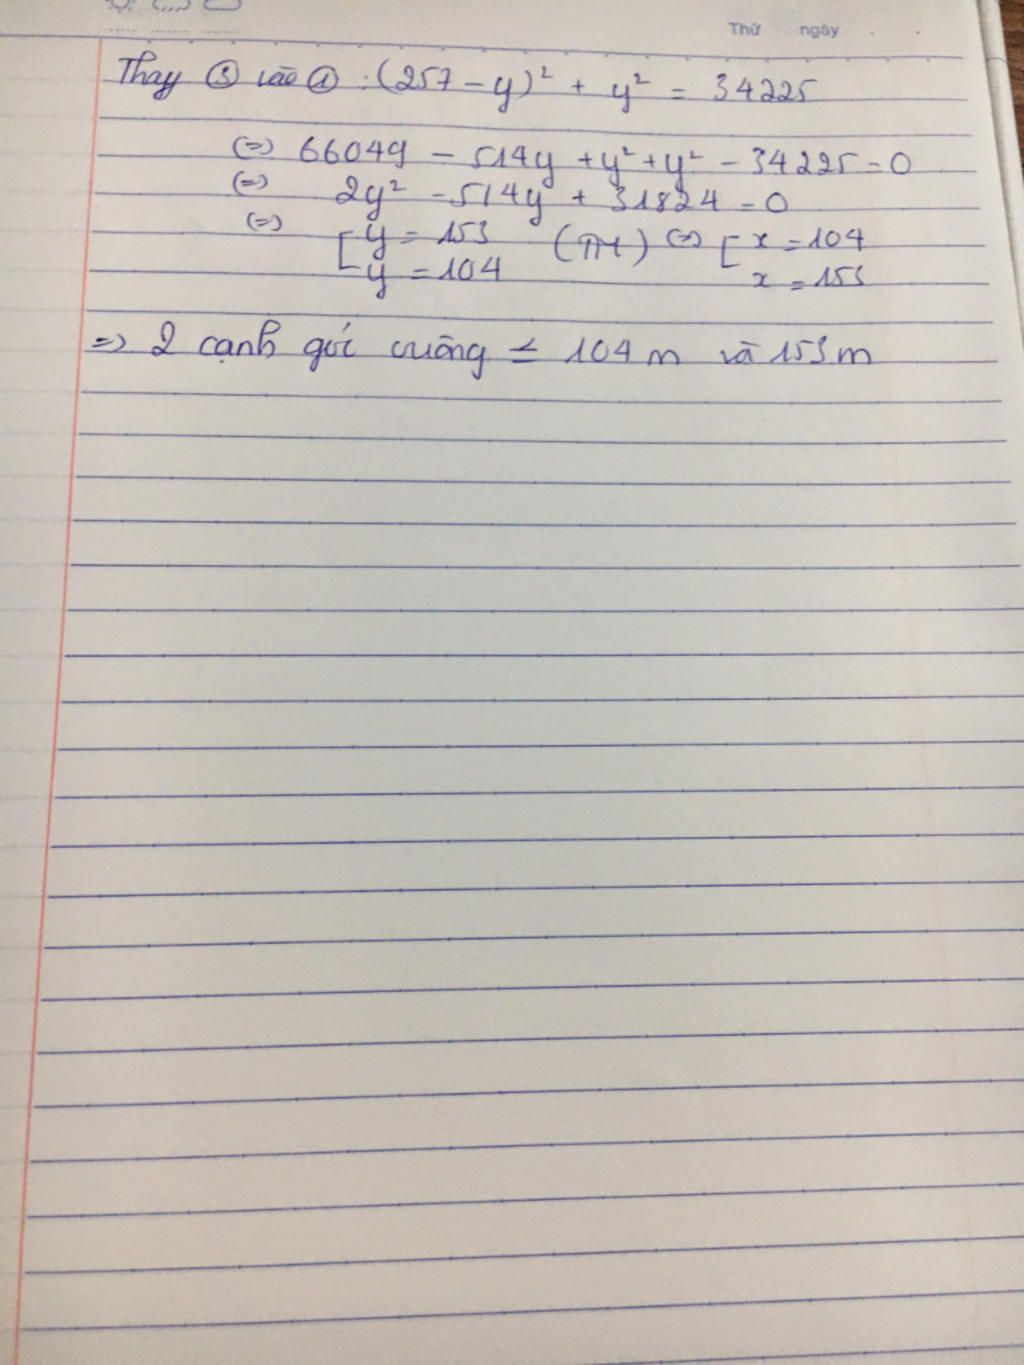 Thứ ngày
Thay ③ vào ① : (257 - y)² + y² = 34225
(=) 66049 - 514y + y² + y² - 34225 = 0
(=) 2y² - 514y + 31824 = 0
(=) [ y = 153 (TM) (=) [ x = 104
y = 104 x = 153
=> 2 cạnh góc vuông là 104m và 153m